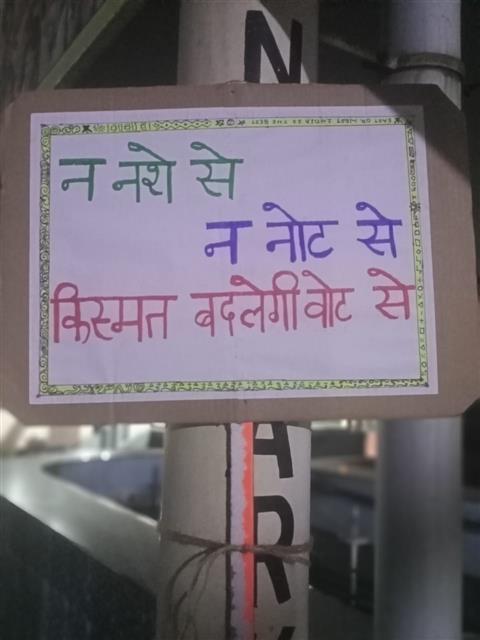 N
न नशे से
न नोट से
किस्मत बदलेगी वोट से
A
R